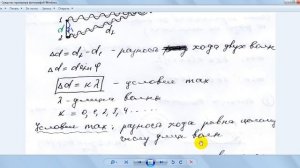 Средство просмотра фотографий Windows
Δd = d₂ - d₁ - разность хода двух волн
Δd = d sin φ
Δd = kλ - условие max
λ - длина волны
k = 0, 1, 2, 3, 4....
Условие max: разность хода равна целому
числу длин волн.